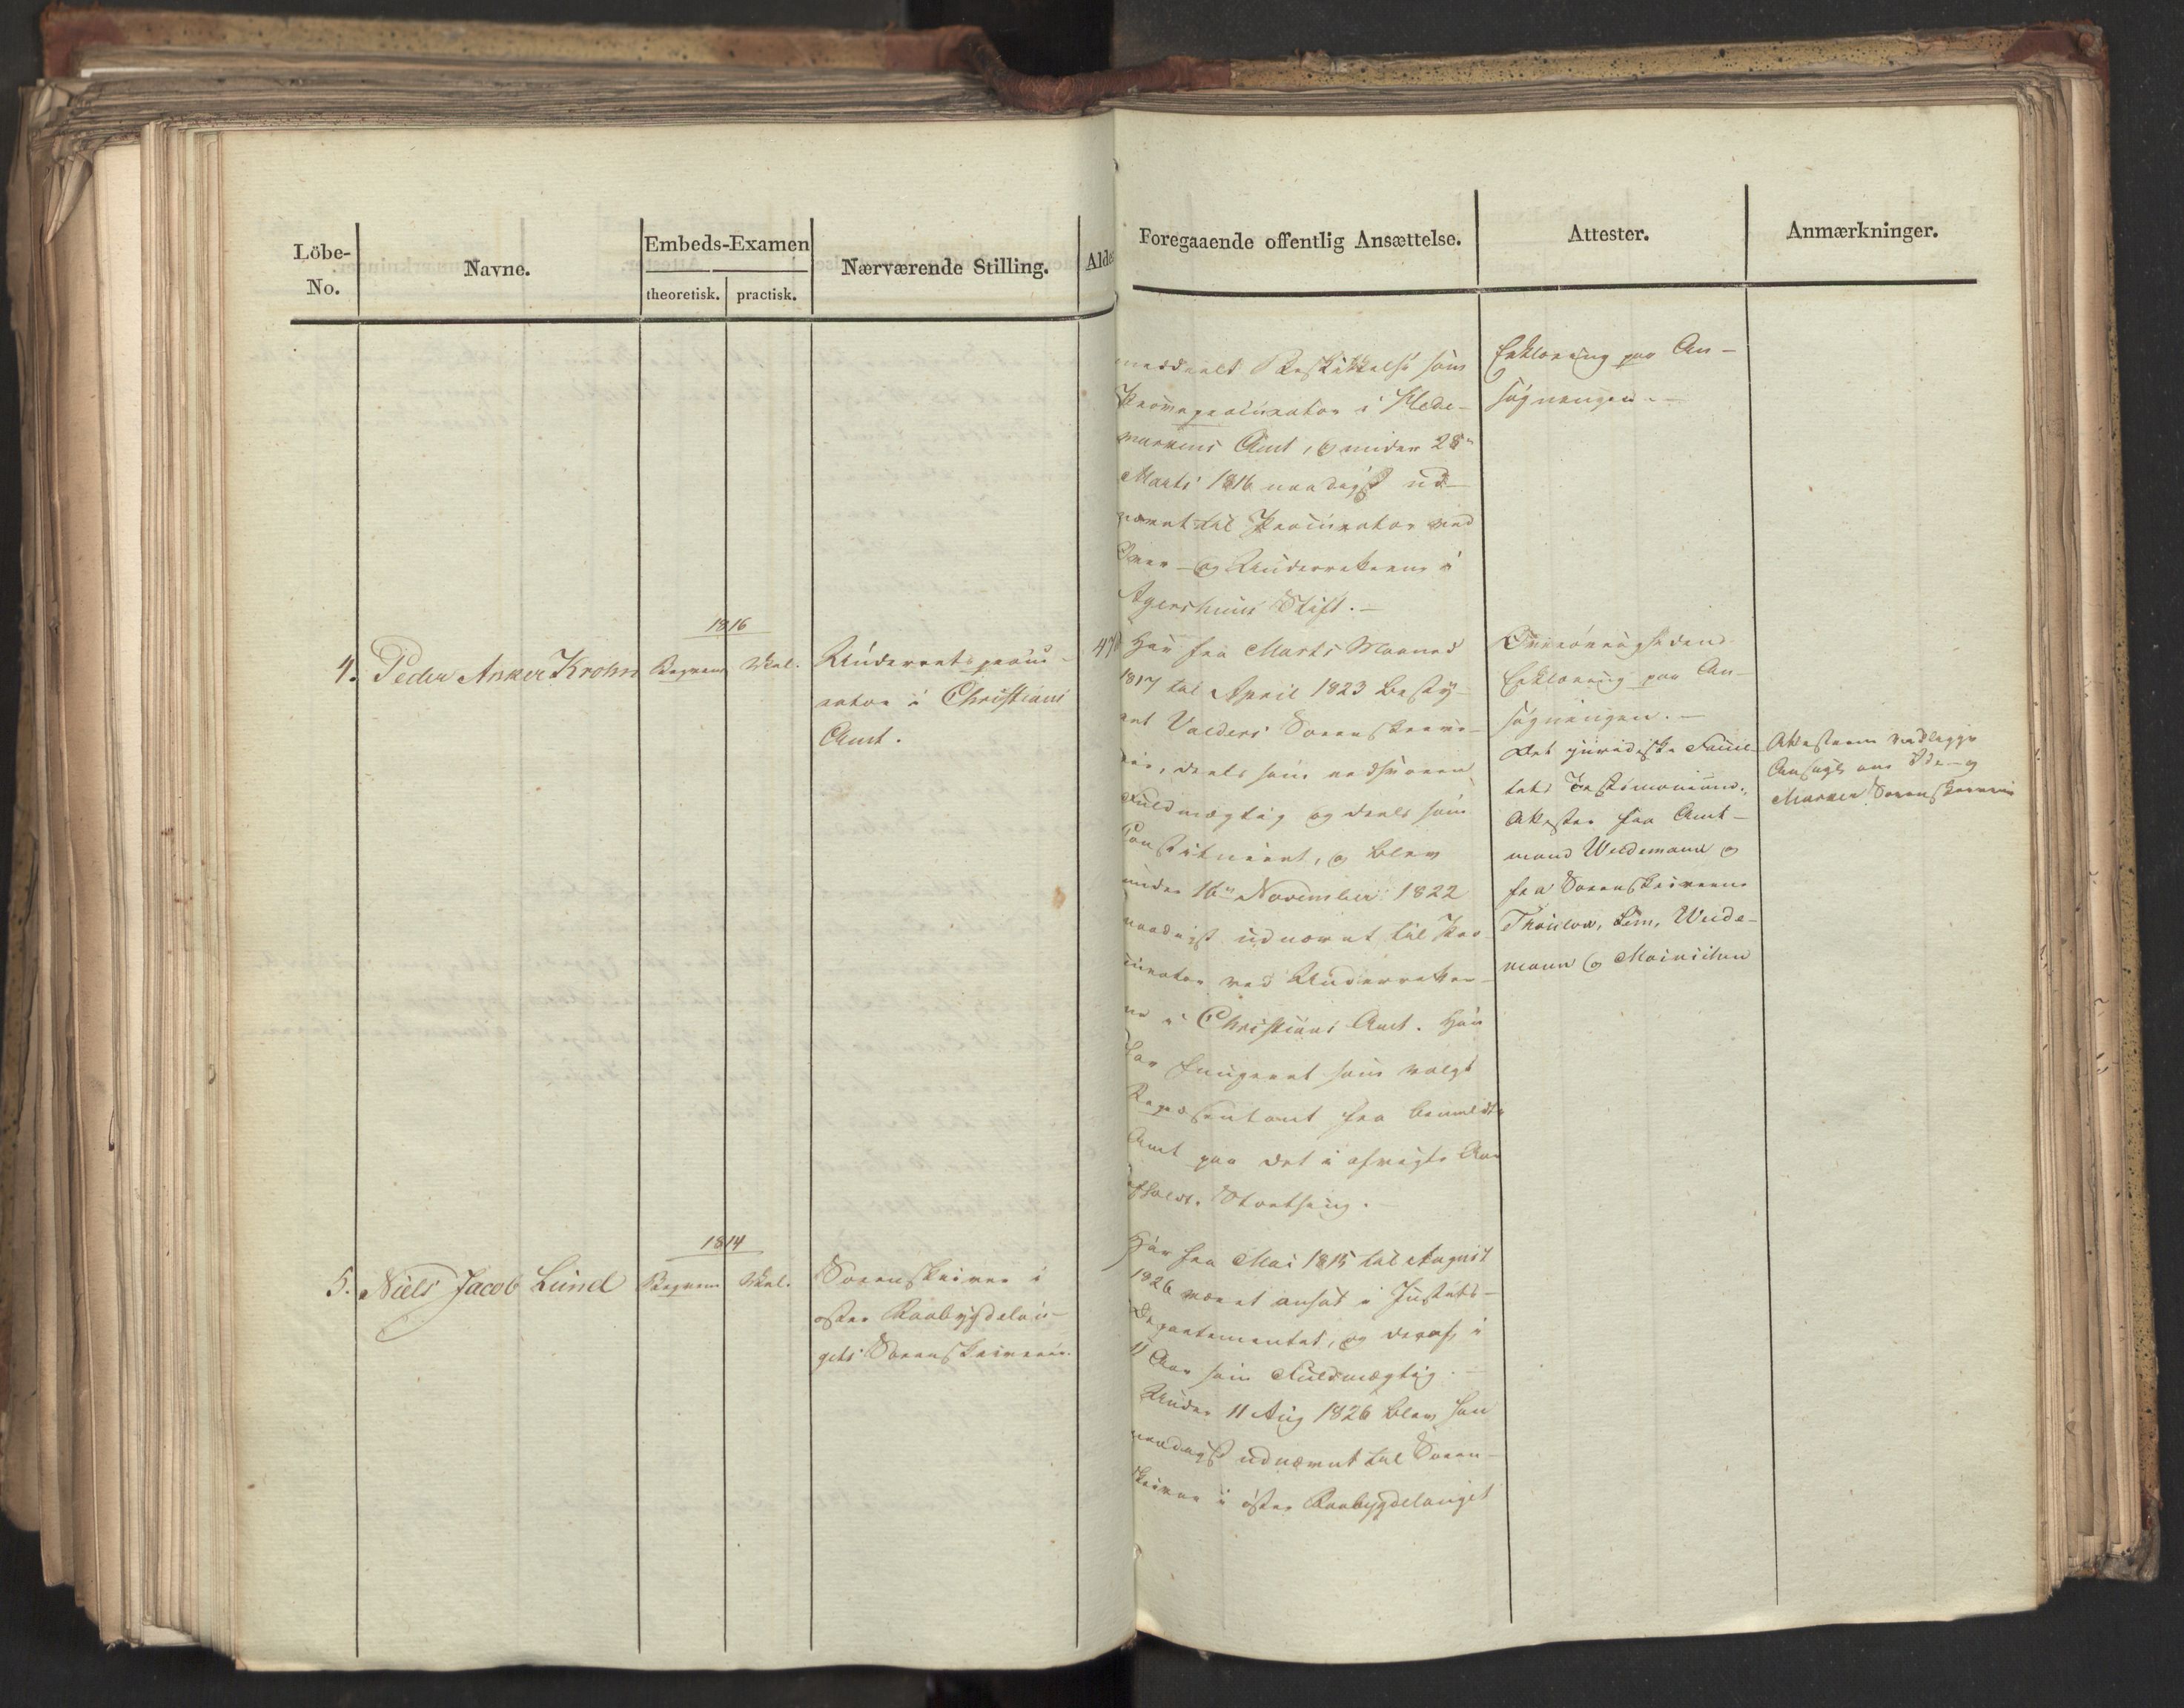 Löbe-
No.
Navne.
Embeds-Examen
theoretisk. practisk.
Nærværende Stilling.
Alde
Foregaaende offentlig Ansættelse.
Attester.
Anmærkninger.
meddeelt Beskikkelse som
Prøveprocurator i Hede-
markens Amt, og under 28de
Marts 1816 naadigst ud-
nævnt til Procurator ved
Over- og Underretterne i
Agershuus Stift.-
Erklæring paa An-
søgningen.-
1816
4. Peder Anker Krohn Beqvem Vel.
Underretsprocu-
rator i Christians
Amt.
47
Har fra Marts Maaned
1817 til April 1823 besty-
ret Valders Sorenskrive-
rie, deels som edsvoren
Fuldmægtig og deels som
Constitueret, og blev
under 16de November 1822
naadigst udnævnt til Pro-
curator ved Underretter-
ne i Christians Amt. Han
har fungeret som valgt
Repræsentant fra bemeldte
Amt paa det i afvigte Aar
afholdte Storthing.
Overøvrighedens
Erklæring paa An-
søgningen.-
Det juridiske Facul-
tets Testimonium.
Attester fra Amt-
mand Weidemann og
fra Sorenskriverne
Thaulow, Lem, Weide-
mann og Meinichen
Attesterne vedlagge
Ansøgn om Ide- og
Marker Sorenskriverie
1814
5. Niels Jacob Lund Beqvem Vel.
Sorenskriver i
øster Raabygdelau-
gets Sorenskriverie.
Har fra Mai 1815 til August
1826 været ansat i Justits-
Departementet, og deraf i
11 Aar som Fuldmægtig.-
Under 11 Aug 1826 blev han
naadigst udnævnt til Soren-
skriver i øster Raabygdelauget